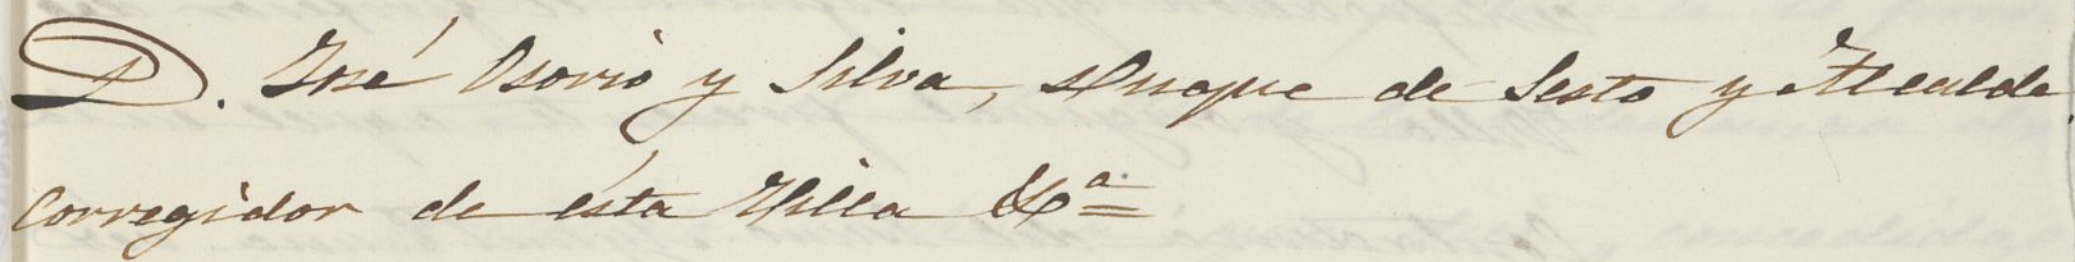 D. José Osorio y Silva, Duque de Sesto y Alcalde
Corregidor de ésta Villa &ª